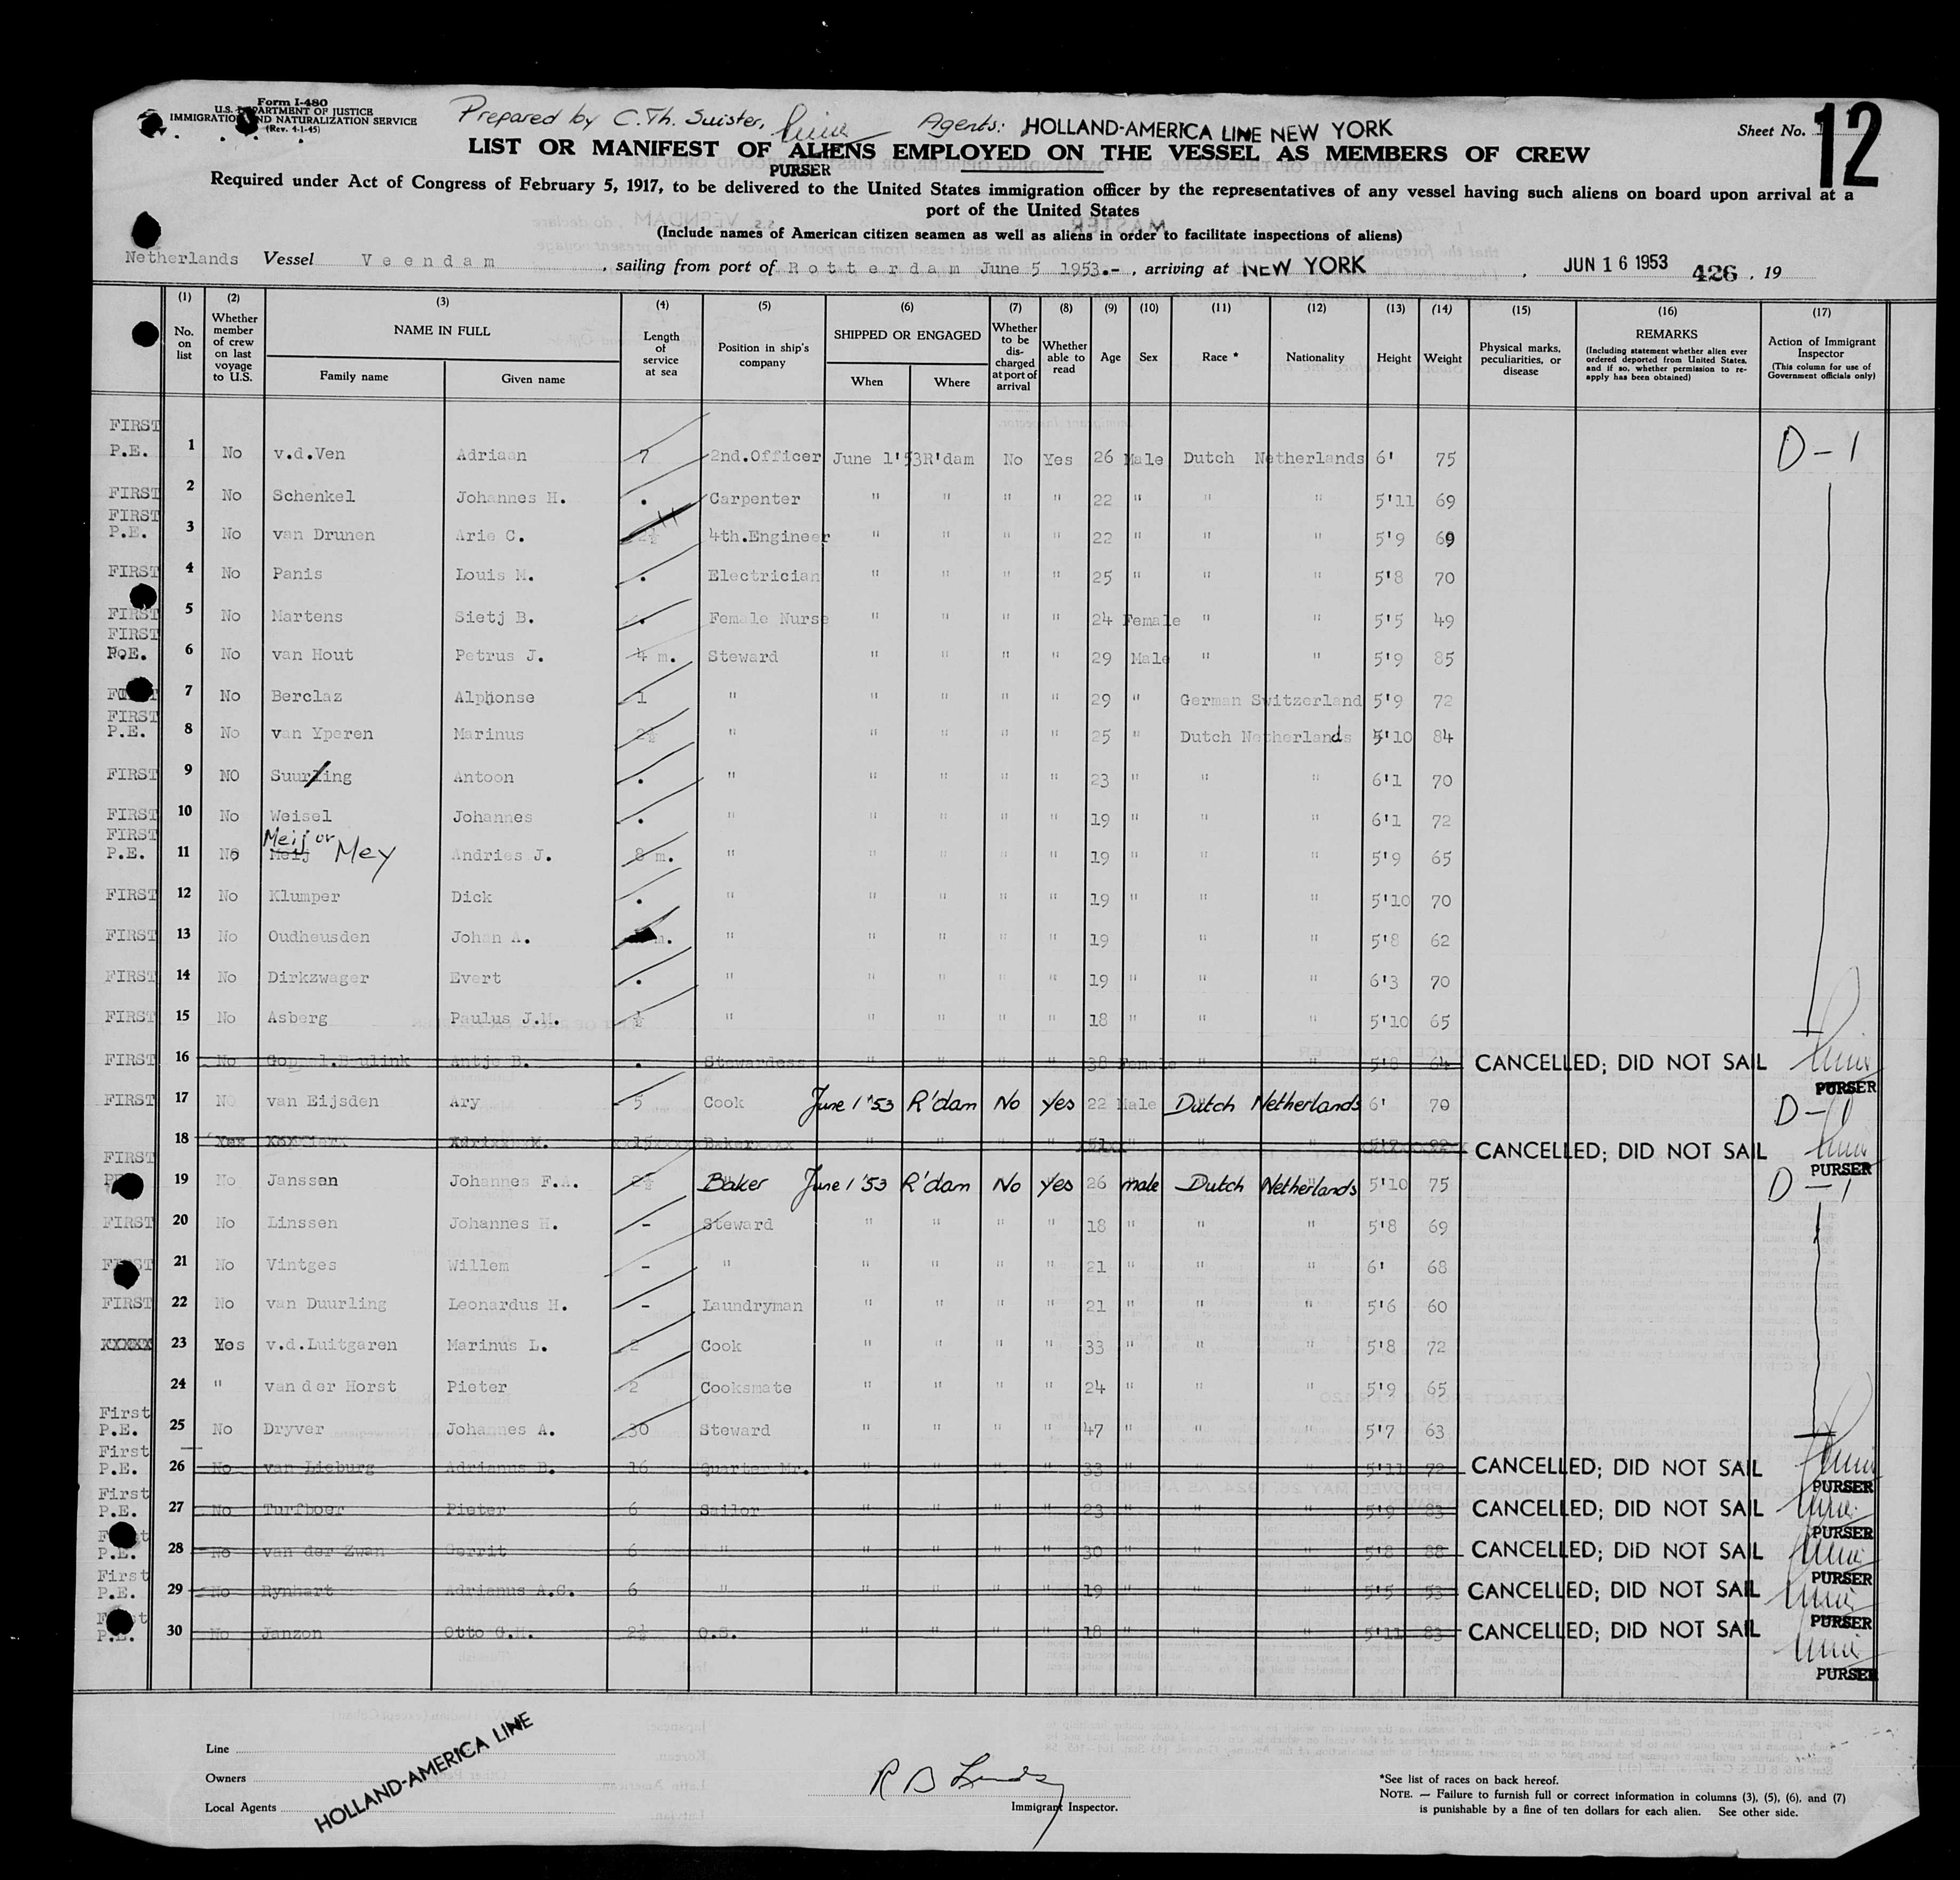 Form I-480
U.S. DEPARTMENT OF JUSTICE
IMMIGRATION AND NATURALIZATION SERVICE
(Rev. 4-1-45)
Prepared by C. Th. Suister,
Agents: HOLLAND-AMERICA LINE NEW YORK
Sheet No. 12
LIST OR MANIFEST OF ALIENS EMPLOYED ON THE VESSEL AS MEMBERS OF CREW
PURSER
Required under Act of Congress of February 5, 1917, to be delivered to the United States immigration officer by the representatives of any vessel having such aliens on board upon arrival at a
port of the United States
(Include names of American citizen seamen as well as aliens in order to facilitate inspections of aliens)
Netherlands Vessel Veendam, sailing from port of Rotterdam June 5 1953.-, arriving at NEW YORK, JUN 16 1953 426, 19
(1) (2) (3) (4) (5) (6) (7) (8) (9) (10) (11) (12) (13) (14) (15) (16) (17)
No. on list
Whether member of crew on last voyage to U.S.
NAME IN FULL
Family name
Given name
Length of service at sea
Position in ship's company
SHIPPED OR ENGAGED
When
Where
Whether to be discharged at port of arrival
Whether able to read
Age
Sex
Race *
Nationality
Height
Weight
Physical marks, peculiarities, or disease
REMARKS
(Including statement whether alien ever ordered deported from United States, and if so, whether permission to re-apply has been obtained)
Action of Immigrant Inspector
(This column for use of Government officials only)
FIRST P.E. 1 No v.d.Ven Adriaan 7 2nd.Officer June 1'53 R'dam No Yes 26 Male Dutch Netherlands 6' 75 D-1
FIRST 2 No Schenkel Johannes H. . Carpenter " " " " 22 " " " 5'11 69
FIRST P.E. 3 No van Drunen Arie C. 2½ 4th.Engineer " " " " 22 " " " 5'9 69
FIRST 4 No Panis Louis M. . Electrician " " " " 25 " " " 5'8 70
FIRST 5 No Martens Sietj B. . Female Nurse " " " " 24 Female " " 5'5 49
FIRST P.E. 6 No van Hout Petrus J. 4 m. Steward " " " " 29 Male " " 5'9 85
7 No Berclaz Alphonse 1 " " " " " 29 " German Switzerland 5'9 72
FIRST P.E. 8 No van Yperen Marinus 2½ " " " " " 25 " Dutch Netherlands 5'10 84
FIRST 9 NO Suurling Antoon . " " " " " 23 " " " 6'1 70
FIRST 10 No Weisel Johannes . " " " " " 19 " " " 6'1 72
FIRST P.E. 11 No Meij Meij or Mey Andries J. 8 m. " " " " " 19 " " " 5'9 65
FIRST 12 No Klumper Dick . " " " " " 19 " " " 5'10 70
FIRST 13 No Oudheusden Johan A. m. " " " " " 19 " " 5'8 62
FIRST 14 No Dirkzwager Evert . " " " " " 19 " " " 6'3 70
FIRST 15 No Asberg Paulus J.M. ½ " " " " " 18 " " " 5'10 65
FIRST 16 No Antje B. . Stewardess " " " " 38 Female " " 5'8 64 CANCELLED; DID NOT SAIL PURSER
FIRST 17 NO van Eijsden Ary 5 Cook June 1 '53 R'dam No Yes 22 Male Dutch Netherlands 6' 70 D-1
18 Yes Baker " " " " 51 " " " CANCELLED; DID NOT SAIL PURSER
FIRST P.E. 19 No Janssen Johannes F.A. 2½ Baker June 1 '53 R'dam No Yes 26 male Dutch Netherlands 5'10 75 D-1
FIRST 20 No Linssen Johannes H. - Steward " " " " 18 " " " 5'8 69
FIRST 21 No Vintges Willem - " " " " " 21 " " " 6' 68
FIRST 22 No van Duurling Leonardus H. - Laundryman " " " " 21 " " " 5'6 60
XXXXX 23 Yes v.d.Luitgaren Marinus L. 2 Cook " " " " 33 " " " 5'8 72
24 " van der Horst Pieter 2 Cooksmate " " " " 24 " " " 5'9 65
First P.E. 25 No Dryver Johannes A. 30 Steward " " " " 47 " " " 5'7 63
First P.E. 26 No van Lieburg Adrianus B. 16 Quarter Mr. " " " " 33 " " " 5'11 72 CANCELLED; DID NOT SAIL PURSER
First P.E. 27 No Turfboer Pieter 6 Sailor " " " " 23 " " " 5'9 83 CANCELLED; DID NOT SAIL PURSER
First P.E. 28 No van der Zwan Gerrit 6 " " " " " 30 " " " 5'8 88 CANCELLED; DID NOT SAIL PURSER
First P.E. 29 No Rynhart Adrianus A.C. 6 " " " " " 19 " " " 5'5 53 CANCELLED; DID NOT SAIL PURSER
First P.E. 30 No Janzon Otto G.H. 2½ O.S. " " " " 18 " " " 5'11 83 CANCELLED; DID NOT SAIL PURSER
Line
Owners
Local Agents
HOLLAND-AMERICA LINE
Immigrant Inspector.
*See list of races on back hereof.
NOTE. — Failure to furnish full or correct information in columns (3), (5), (6), and (7)
is punishable by a fine of ten dollars for each alien. See other side.